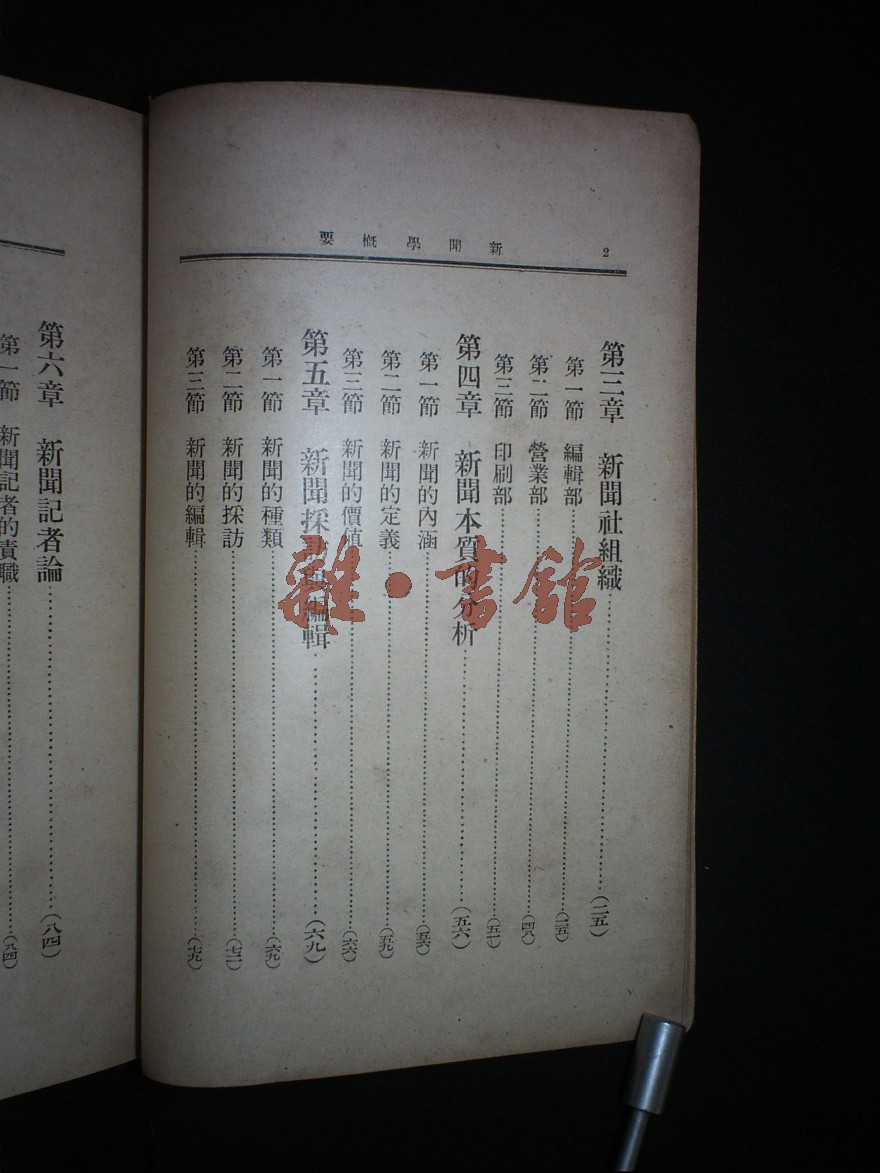 2 新聞學概要
第三章 新聞社組織……(二五)
第一節 編輯部……(二五)
第二節 營業部……(四八)
第三節 印刷部……(五一)
第四章 新聞本質的分析……(五六)
第一節 新聞的內涵……(五六)
第二節 新聞的定義……(五九)
第三節 新聞的價值……(六六)
第五章 新聞採訪與編輯……(六九)
第一節 新聞的種類……(六九)
第二節 新聞的採訪……(七二)
第三節 新聞的編輯……(七九)
第六章 新聞記者論……(八四)
第一節 新聞記者的責職……(八四)
雜·書館